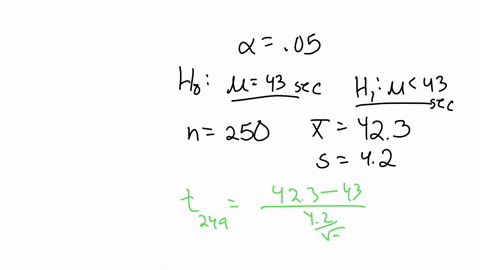 α = .05
H₀: μ = 43 sec H₁: μ < 43 sec
n = 250 x̄ = 42.3
s = 4.2
t₂₄₉ = 42.3 − 43
4.2
√